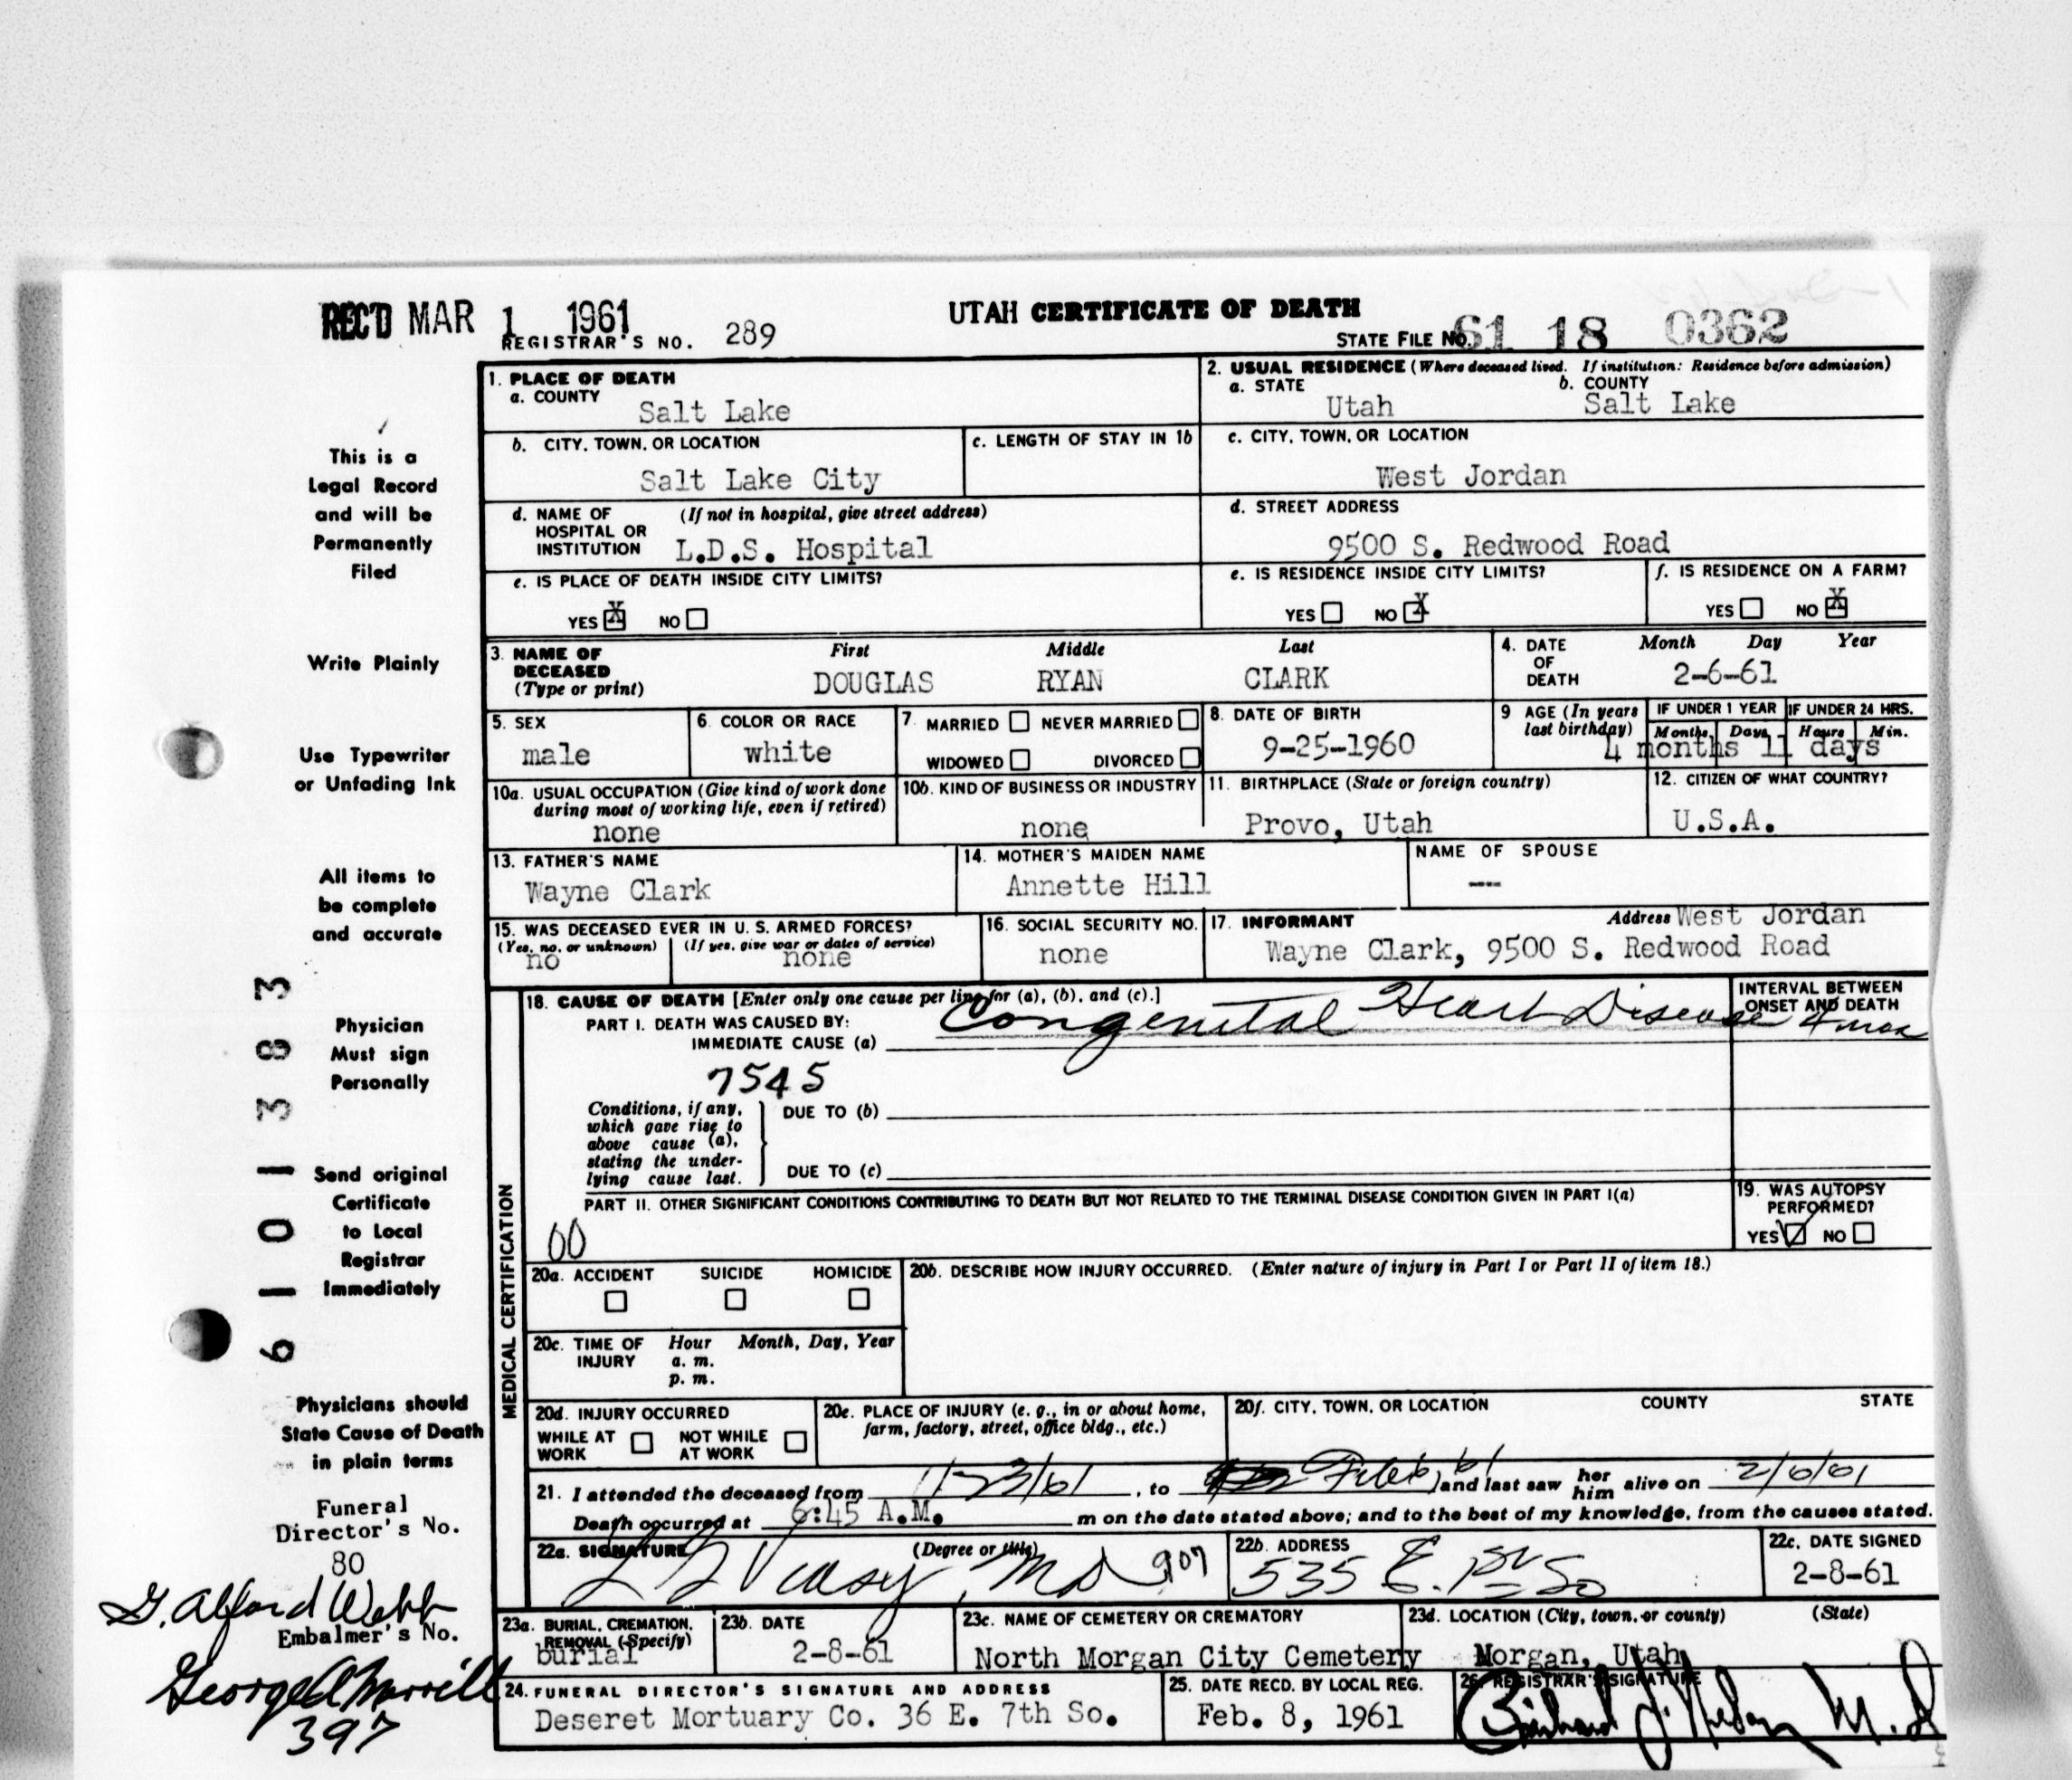 REC'D MAR 1 1961
UTAH CERTIFICATE OF DEATH
REGISTRAR'S NO. 289
STATE FILE NO. 61 18 0362
This is a
Legal Record
and will be
Permanently
Filed
Write Plainly
Use Typewriter
or Unfading Ink
All items to
be complete
and accurate
Physician
Must sign
Personally
Send original
Certificate
to Local
Registrar
Immediately
Physicians should
State Cause of Death
in plain terms
Funeral
Director's No.
80
G. Alford Webb
Embalmer's No.
397
61013383
1. PLACE OF DEATH
a. COUNTY
Salt Lake
2. USUAL RESIDENCE (Where deceased lived. If institution: Residence before admission)
a. STATE b. COUNTY
Utah Salt Lake
b. CITY, TOWN, OR LOCATION
Salt Lake City
c. LENGTH OF STAY IN 1b
c. CITY, TOWN, OR LOCATION
West Jordan
d. NAME OF (If not in hospital, give street address)
HOSPITAL OR
INSTITUTION L.D.S. Hospital
d. STREET ADDRESS
9500 S. Redwood Road
e. IS PLACE OF DEATH INSIDE CITY LIMITS?
YES X NO
e. IS RESIDENCE INSIDE CITY LIMITS?
YES NO X
f. IS RESIDENCE ON A FARM?
YES NO X
3. NAME OF DECEASED (Type or print)
First Middle Last
DOUGLAS RYAN CLARK
4. DATE OF DEATH
Month Day Year
2-6-61
5. SEX
male
6. COLOR OR RACE
white
7. MARRIED NEVER MARRIED
WIDOWED DIVORCED
8. DATE OF BIRTH
9-25-1960
9 AGE (In years last birthday)
IF UNDER 1 YEAR IF UNDER 24 HRS.
Months Days Hours Min.
4 months 11 days
10a. USUAL OCCUPATION (Give kind of work done
during most of working life, even if retired)
none
10b. KIND OF BUSINESS OR INDUSTRY
none
11. BIRTHPLACE (State or foreign country)
Provo, Utah
12. CITIZEN OF WHAT COUNTRY?
U.S.A.
13. FATHER'S NAME
Wayne Clark
14. MOTHER'S MAIDEN NAME
Annette Hill
NAME OF SPOUSE
---
15. WAS DECEASED EVER IN U. S. ARMED FORCES?
(Yes, no, or unknown) (If yes, give war or dates of service)
no none
16. SOCIAL SECURITY NO.
none
17. INFORMANT Address West Jordan
Wayne Clark, 9500 S. Redwood Road
MEDICAL CERTIFICATION
18. CAUSE OF DEATH [Enter only one cause per line for (a), (b), and (c).]
PART I. DEATH WAS CAUSED BY:
IMMEDIATE CAUSE (a) Congenital Heart Disease
INTERVAL BETWEEN
ONSET AND DEATH
4 mos
7545
Conditions, if any,
which gave rise to
above cause (a),
stating the under-
lying cause last.
DUE TO (b)
DUE TO (c)
PART II. OTHER SIGNIFICANT CONDITIONS CONTRIBUTING TO DEATH BUT NOT RELATED TO THE TERMINAL DISEASE CONDITION GIVEN IN PART I(a)
00
19. WAS AUTOPSY
PERFORMED?
YES NO
20a. ACCIDENT SUICIDE HOMICIDE
20b. DESCRIBE HOW INJURY OCCURRED. (Enter nature of injury in Part I or Part II of item 18.)
20c. TIME OF INJURY
Hour Month, Day, Year
a. m.
p. m.
20d. INJURY OCCURRED
WHILE AT WORK NOT WHILE AT WORK
20e. PLACE OF INJURY (e. g., in or about home,
farm, factory, street, office bldg., etc.)
20f. CITY, TOWN, OR LOCATION COUNTY STATE
21. I attended the deceased from 1-23/61, to Feb 6, 61 and last saw her him alive on 2/6/61
Death occurred at 6:45 A.M. m on the date stated above; and to the best of my knowledge, from the causes stated.
22a. SIGNATURE (Degree or title)
Veasy, MD 907
22b. ADDRESS
535 E.
22c. DATE SIGNED
2-8-61
23a. BURIAL, CREMATION,
REMOVAL (Specify)
burial
23b. DATE
2-8-61
23c. NAME OF CEMETERY OR CREMATORY
North Morgan City Cemetery
23d. LOCATION (City, town, or county) (State)
Morgan, Utah
24. FUNERAL DIRECTOR'S SIGNATURE AND ADDRESS
Deseret Mortuary Co. 36 E. 7th So.
25. DATE RECD. BY LOCAL REG.
Feb. 8, 1961
26. REGISTRAR'S SIGNATURE